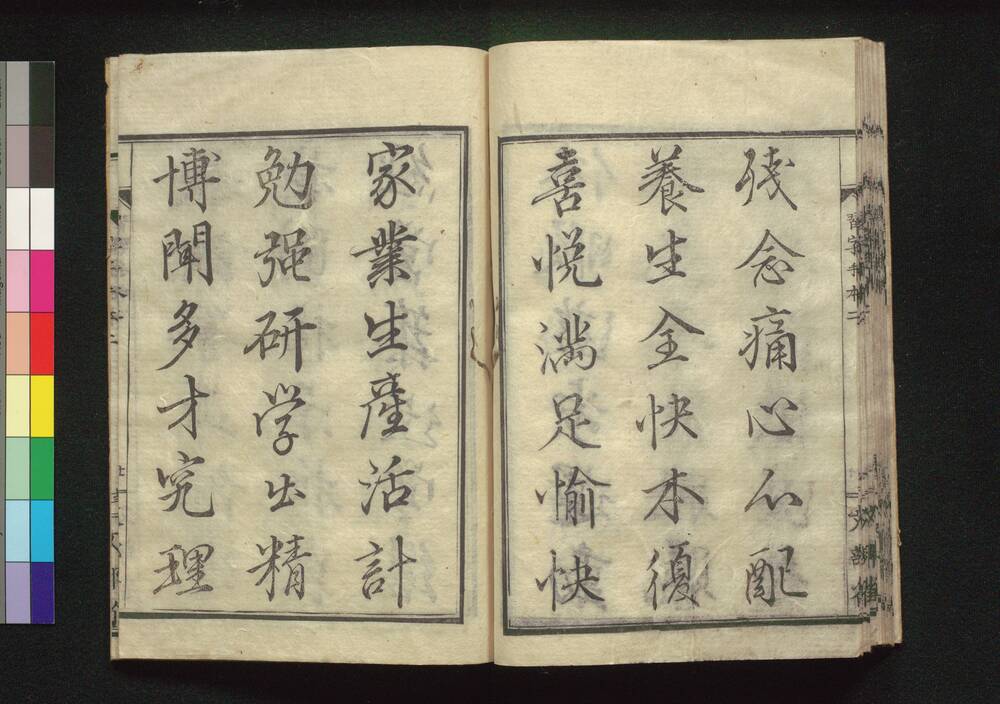 残念痛心心配
養生全快本復
喜悦満足愉快
家業生産活計
勉强研学出精
博聞多才究理
習字手本二